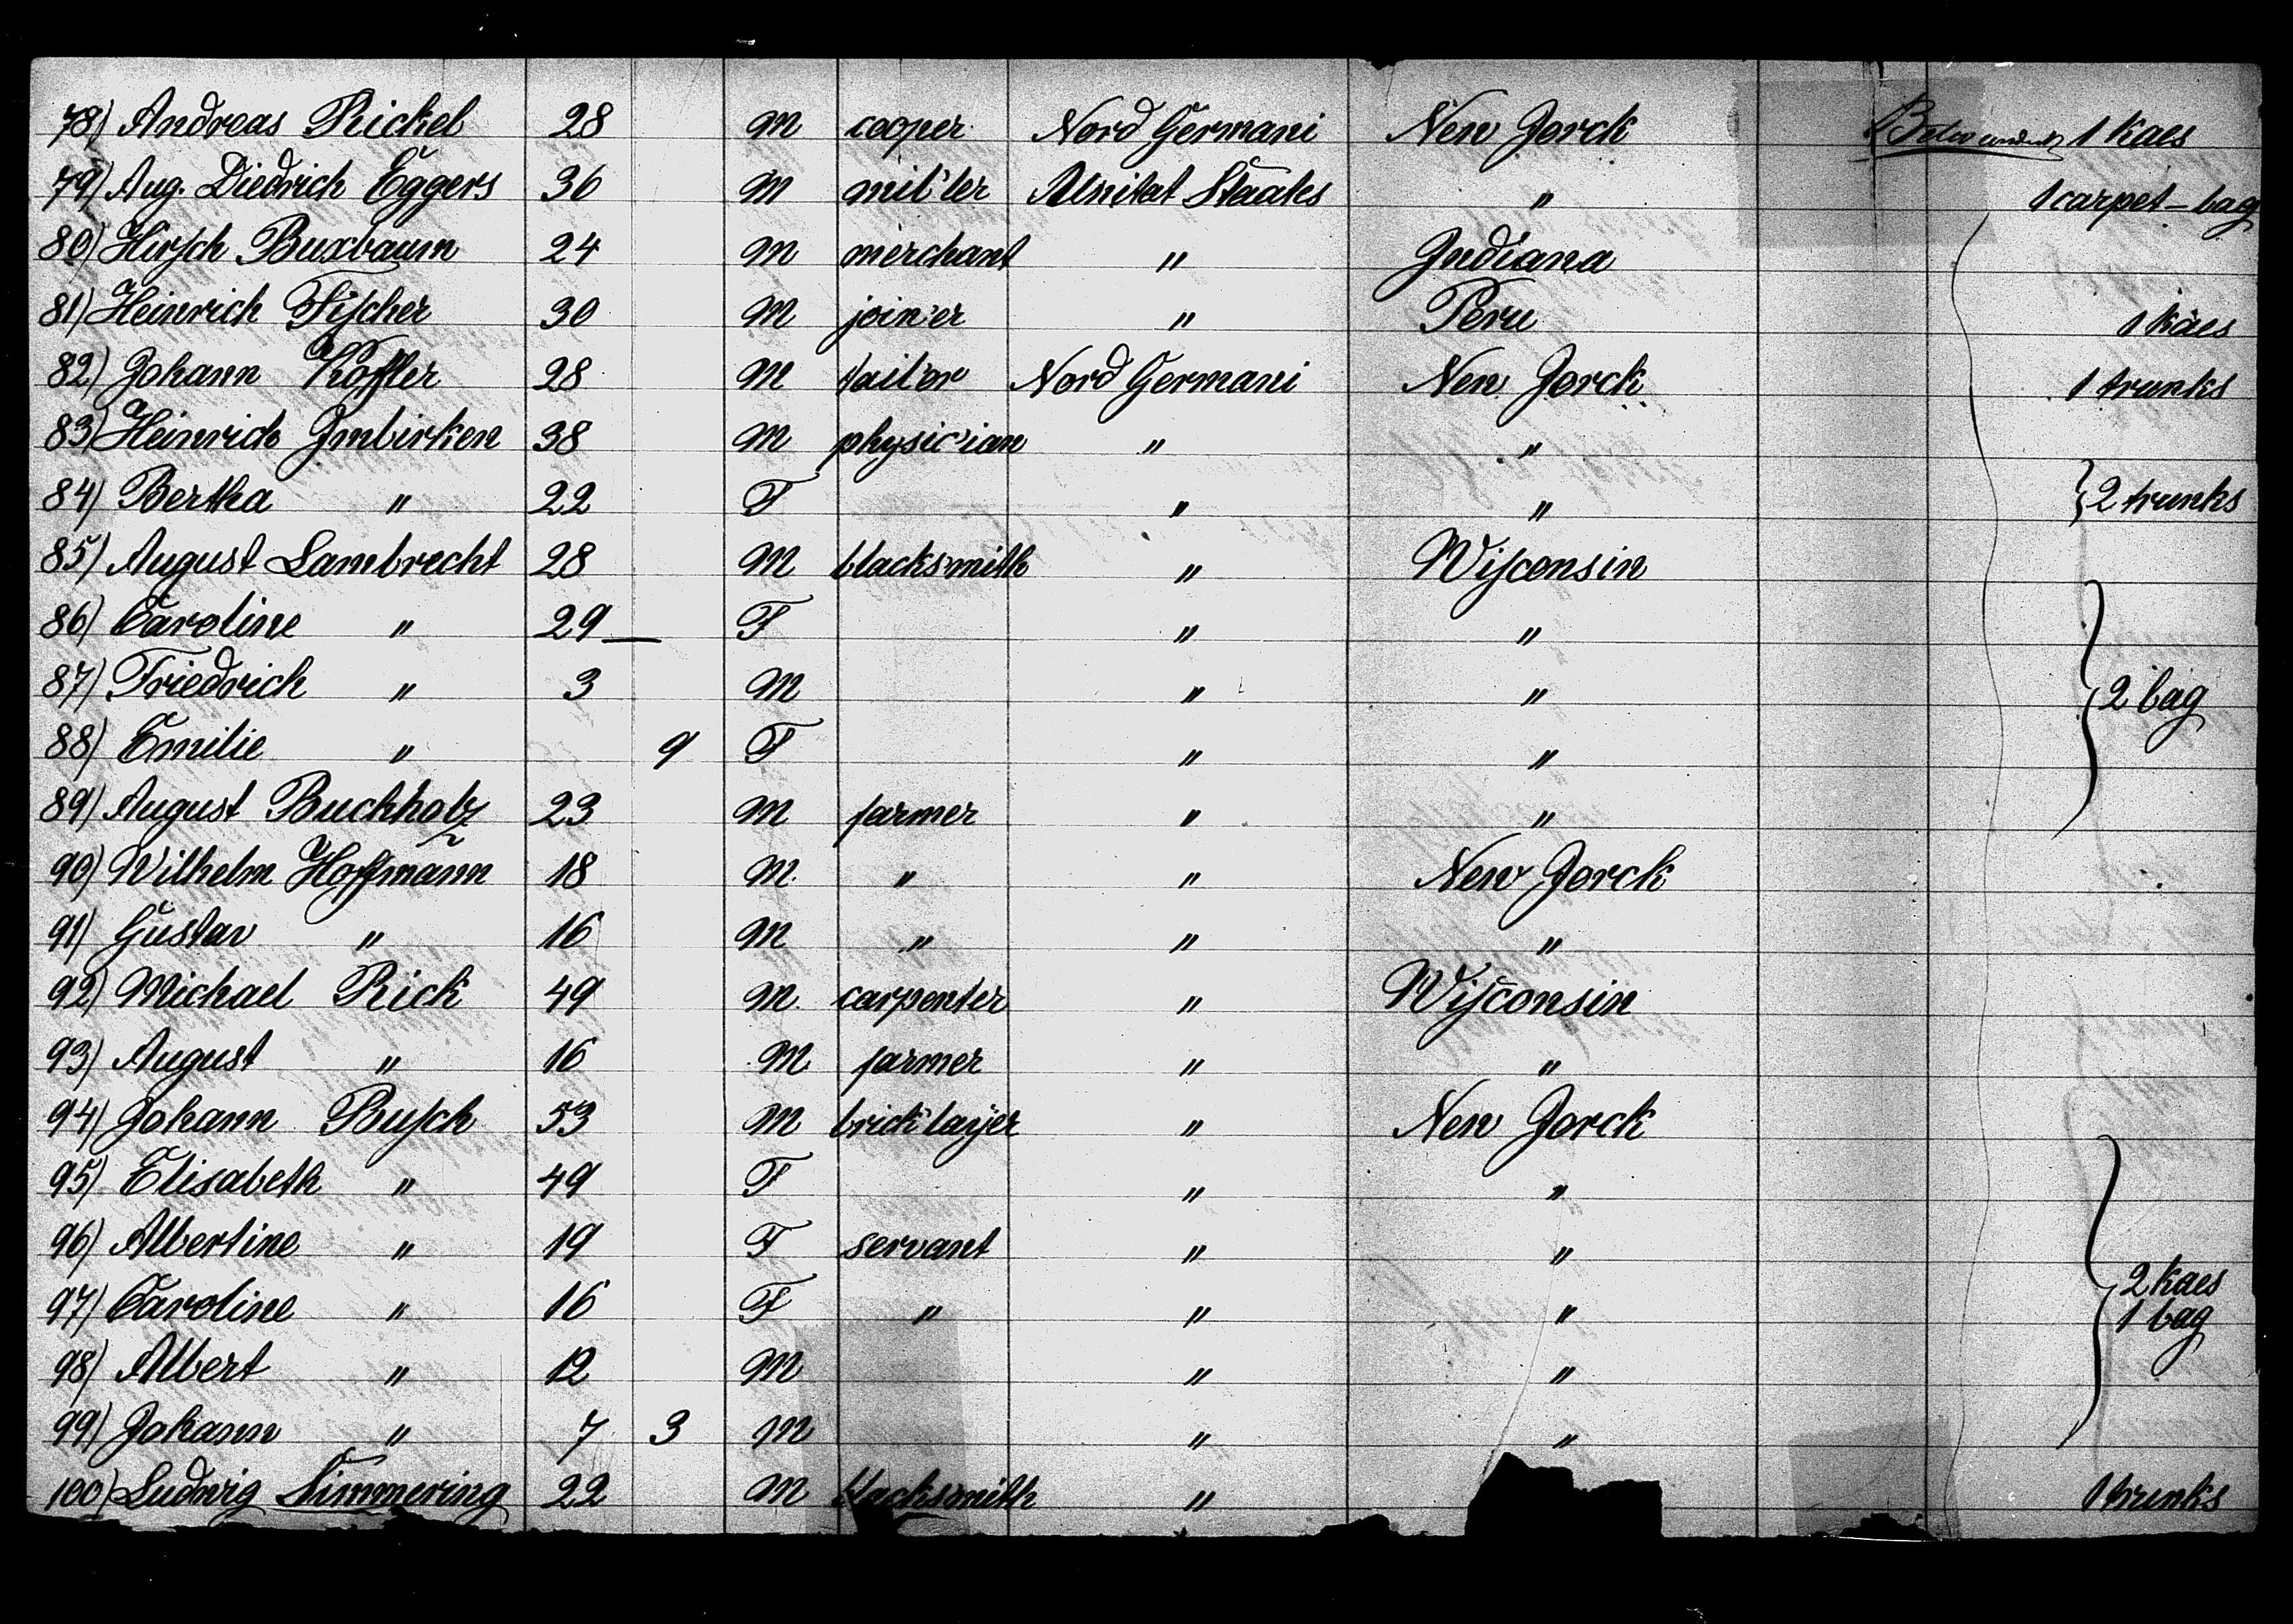 78) Andreas Rickel 28 M cooper Nord Germani New Jorck 1 Kaes
79) Aug. Diedrich Eggers 36 M mil'ler Unitat Staates " 1 carpet-bag
80) Hirsch Buxbaum 24 M merchant " Indiana
81) Heinrich Fischer 30 M join'er " Peru 1 Kaes
82) Johann Koffler 28 M tail'or Nord Germani New Jorck 1 trunks
83) Heinrich Imbirken 38 M physic'ian " "
84) Bertha " 22 F " " 2 trunks
85) August Lambrecht 28 M blacksmith " Wisconsin
86) Caroline " 29 — F " "
87) Friedrich " 3 M " " 2 bag
88) Emilie " 9 F " "
89) August Buchholz 23 M farmer " "
90) Wilhelm Hoffmann 18 M " " New Jorck
91) Gustav " 16 M " " "
92) Michael Rick 49 M carpenter " Wisconsin
93) August " 16 M farmer " "
94) Johann Busch 53 M brick'layer " New Jorck
95) Elisabeth " 49 F " "
96) Albertine " 19 F servant " "
97) Caroline " 16 F " " " 2 Kaes
1 bag
98) Albert " 12 M " "
99) Johann " 7 3 M " "
100) Ludwig Simmering 22 M blacksmith " 1 trunks